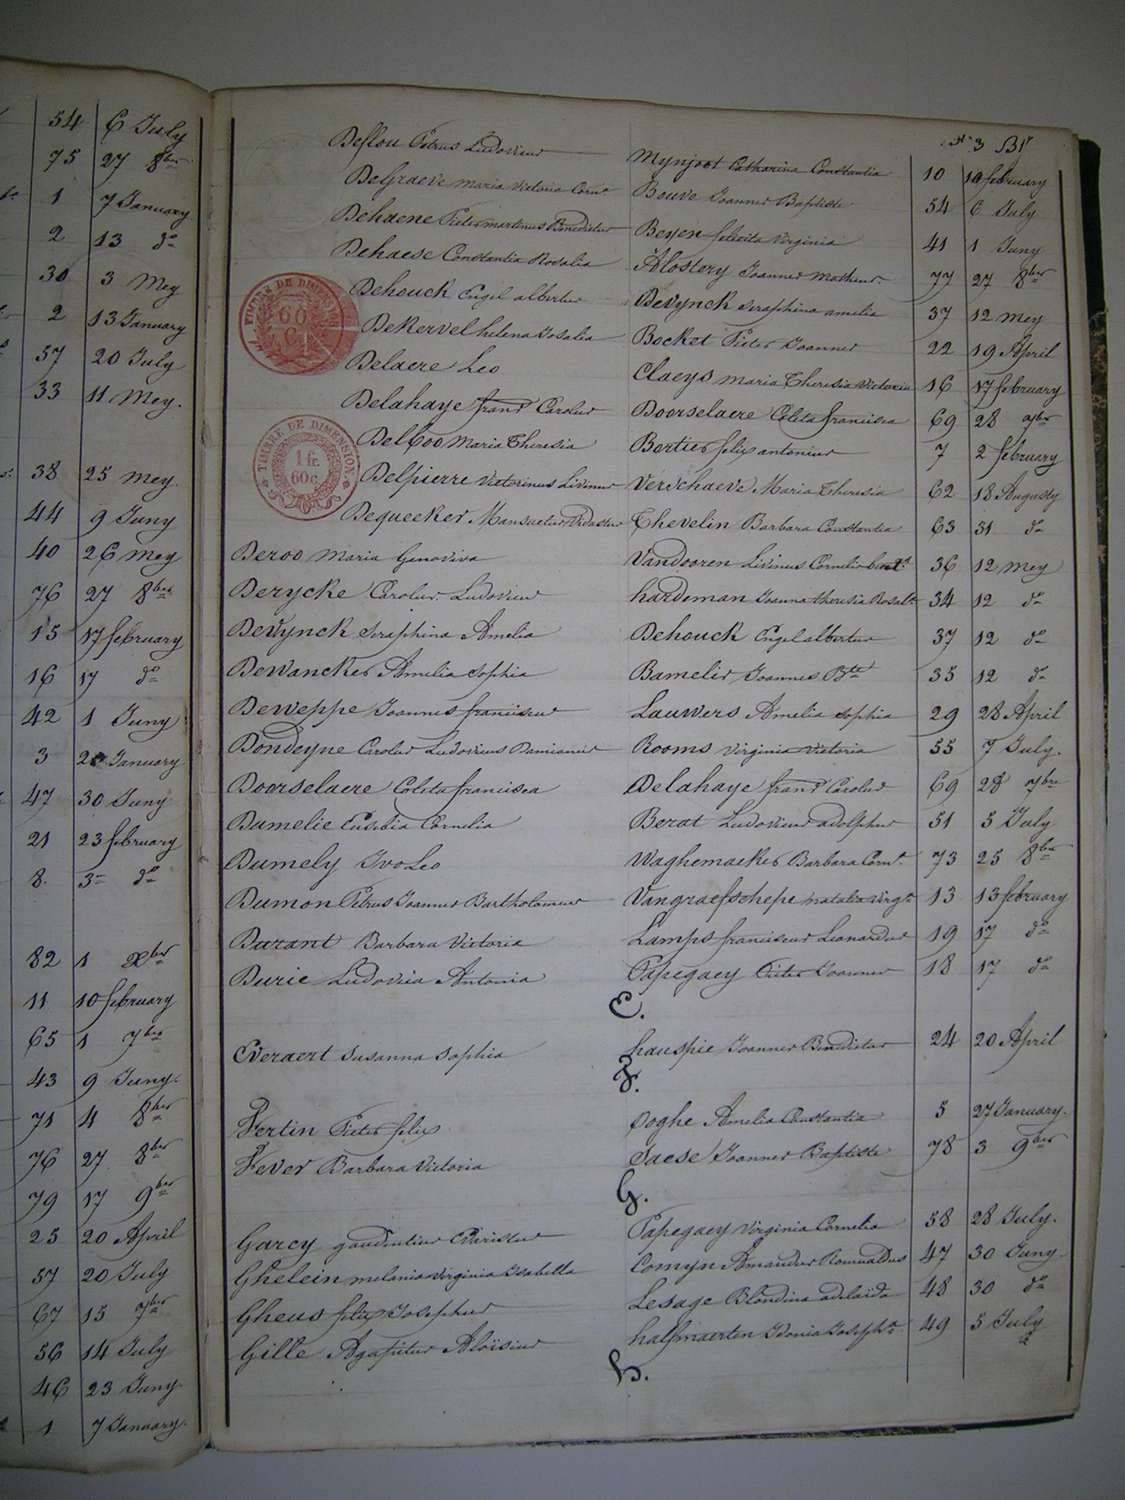 54 6 July
75 27 8ber
1 7 January
2 13 do
30 3 Mey
2 13 January
57 20 July
33 11 Mey.
38 25 mey.
44 9 Juny
40 26 mey
76 27 8ber
15 17 february
16 17 do
42 1 Juny
3 2 January
47 30 Juny
21 23 february
8. 3 do
82 1 xber
11 10 february
65 1 7ber
43 9 Juny.
71 4 8ber
76 27 8ber
79 17 9ber
25 20 April
57 20 July
67 15 7ber
56 14 July
46 23 Juny
1 7 January.
No 3 Bl
Deflou Petrus Ludovicus Mynjoot Catharina Constantia 10 10 february
DeGraeve maria Victoria Bouve Joannes Baptiste 54 6 July
Dehaene Pieter martinus Benedictus Beyen felicita Virginia 41 1 Juny
Dehaese Constantia Rosalia Alostery Joannes Matheus. 77 27 8ber
Dehouck Engel albertus Devynck seraphina amelia 37 12 mey
DeKervel helena Rosalia Bocket Pieter Joannes 22 19 April
Delaere Leo Claeys maria Theresia Victoria 16 17 february
Delahaye frans Carolus Doorselaere Coleta francisca 69 28 7ber
Delboo Maria Theresia Bortier felix antonius 7 2 february
Delpierre Victorinus Livinus Verschaeve Maria Theresia 62 18 Augusty
Dequeeker Mansuetus Vedastus Thevelin Barbara Constantia 63 31 do
Deroo Maria Genoviva Vandooren Livinus Cornelis 36 12 mey
Derycke Carolus Ludovicus hardeman Joanna theresia Rosal. 34 12 do
Devynck seraphina Amelia Dehouck Engel albertus 37 12 do
Dewancker Amelia sophia Bamelis Joannes Bte 35 12 do
Deweppe Joannes franciscus Lauwers Amelia sophia 29 28 April
Dondeyne Carolus Ludovicus Damianus Rooms Virginia Victoria 55 7 July.
Doorselaere Coleta francisca Delahaye frans Carolus 69 28 7ber
Dumelie Eusebia Cornelia Berat Ludovicus adolphus 51 5 July
Dumely Ivo Leo Waghemaeker Barbara Const. 73 25 8ber
Dumon Petrus Joannes Bartholomeus Vangraefschepe natalia virg. 13 13 february
Durant Barbara Victoria Lamps franciscus Leonardus 19 17 do
Durie Ludovica Antonia Papegaey Pieter Joannes 18 17 do
E.
Everaert Susanna sophia hauspie Joannes Benedictus 24 20 April
F.
Fertin Pieter felix Doghe Amelia Constantia 5 27 January.
Fever Barbara Victoria Saese Joannes Baptiste 78 3 9ber
G.
Garcy gaudentius Evaristus Papegaey Virginia Cornelia 58 28 July.
Ghelein melania Virginia Isabella Comyn Amandus Romualdus 47 30 Juny
Gheus felix Josephus Lesage Blondina adelaïda 48 30 do
Gille Agapitus Aloïsius halfmaerten Idonia Joseph. 49 5 July
H.
TIMBRE DE DIMENSION
60
C
TIMBRE DE DIMENSION
1 fr.
60c.